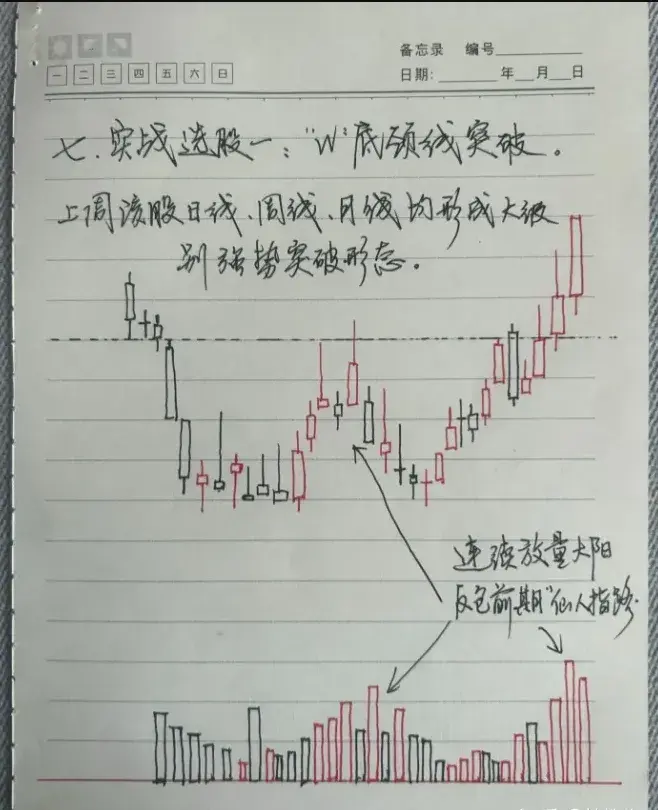 备忘录 编号
一 二 三 四 五 六 日
日期: 年 月 日
七、实战选股一:"W"底颈线突破。
上周该股日线、周线、月线均形成大级
别强势突破形态。
连续放量大阳
反包前期"仙人指路"